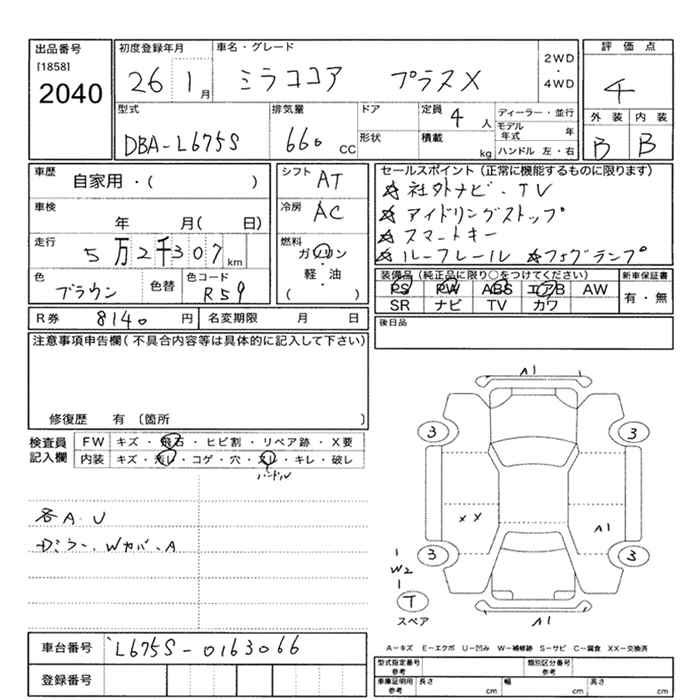 出品番号
[1858]
2040
初度登録年月
26 1月
車名・グレード
ミラココア プラスX
2WD
・
4WD
評価点
4
型式
DBA-L675S
排気量
660 CC
ドア
形状
定員 4人
積載 kg
ディーラー・並行
モデル年式 年
ハンドル 左・右
外装 内装
B B
車歴
自家用・( )
車検
年 月( 日)
走行
5万2千307km
色
ブラウン
色替
色コード
R59
シフト AT
冷房 AC
燃料
ガソリン
・
軽・油
( )
セールスポイント(正常に機能するものに限ります)
☆社外ナビ・TV
☆アイドリングストップ
☆スマートキー
☆ルーフレール ☆フォグランプ
装備品(純正品に限り○をつけてください)
PS PW ABS エアB AW
SR ナビ TV カワ
新車保証書
有・無
R券 8140円
名変期限 月 日
後日品
注意事項申告欄(不具合内容等は具体的に記入して下さい)
修復歴 有〔箇所 〕
検査員記入欄
FW キズ・飛石・ヒビ割・リペア跡・X要
内装 キズ・汚レ・コゲ・穴・スレ・キレ・破レ
ハンドル
各A.U
Dミラー、Wカバー、A
A1
3 3
XX A1
W2
3 3
T
スペア
A1
車台番号 L675S-0163066
登録番号
A―キズ E―エクボ U―凹み W―補修跡 S―サビ C―腐食 XX―交換済
型式指定番号
参考
類別区分番号
参考
車庫証明用
参考
長さ cm
幅 cm
高さ cm